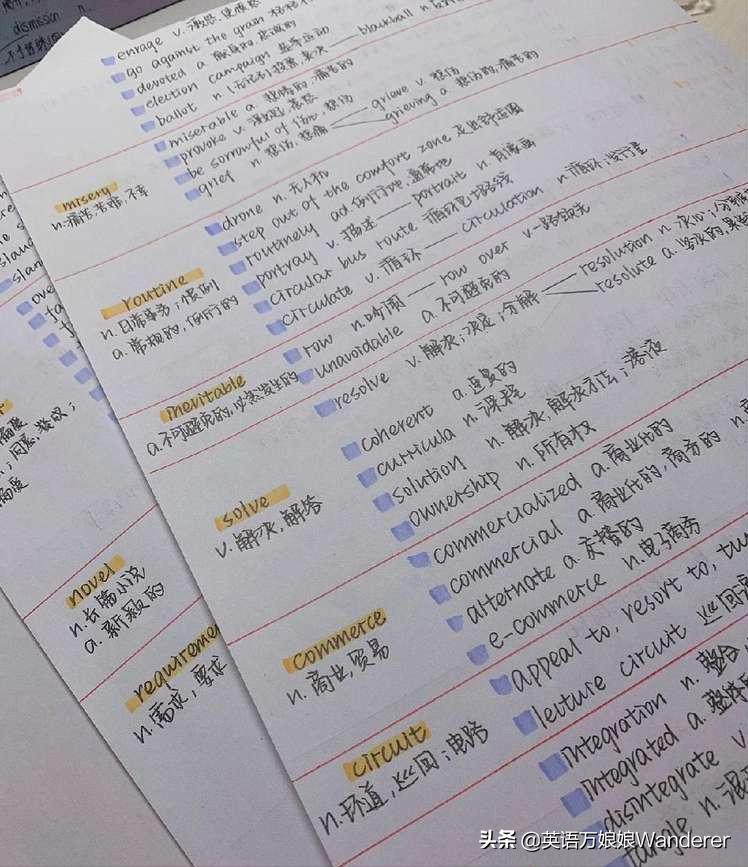 dismissin n.
enrage v. 激怒,使愤怒
go against the grain
devoted a.
election campaign 竞争运动
ballot n. — blackball n.
miserable a. 悲惨的,痛苦的
provoke v. 激起,惹怒
be sorrowful of
grief n. 悲伤,悲痛 — grieve v. 悲伤
grieving a. 悲伤的,痛苦的
misery
n.痛苦,苦难,不幸
drone n. 无人机
step out of the comfort zone 走出舒适圈
routinely ad 例行地,
portray v. 描述 — portrait n. 肖像画
circular bus route 循环巴士路线
circulate v. 循环 — circulation n. 循环;发行量
routine
n.日常事务;惯例
a.常规的,例行的
row n.吵闹 — row over v.
unavoidable a.不可避免的
inevitable
a.不可避免的,必然发生的
resolve v.解决;决定;分解 — resolution n.决心;
resolute a.坚决的,
coherent a.连贯的
curricula n.课程
solution n.解决,解决方法;溶液
ownership n.所有权
solve
v.解决,解答
commercialized a.商业化的
commercial a.商业化的,商务的
alternate a.交替的
e-commerce n.电子商务
commerce
n.商业,贸易
appeal to, resort to,
lecture circuit 巡回
circuit
n.环道,巡回;电路
integration n.整合
integrated a.整体
disintegrate v
n.
novel
n.长篇小说
a.新颖的
requireme
n.需求,要求
头条 @英语万娘娘Wanderer